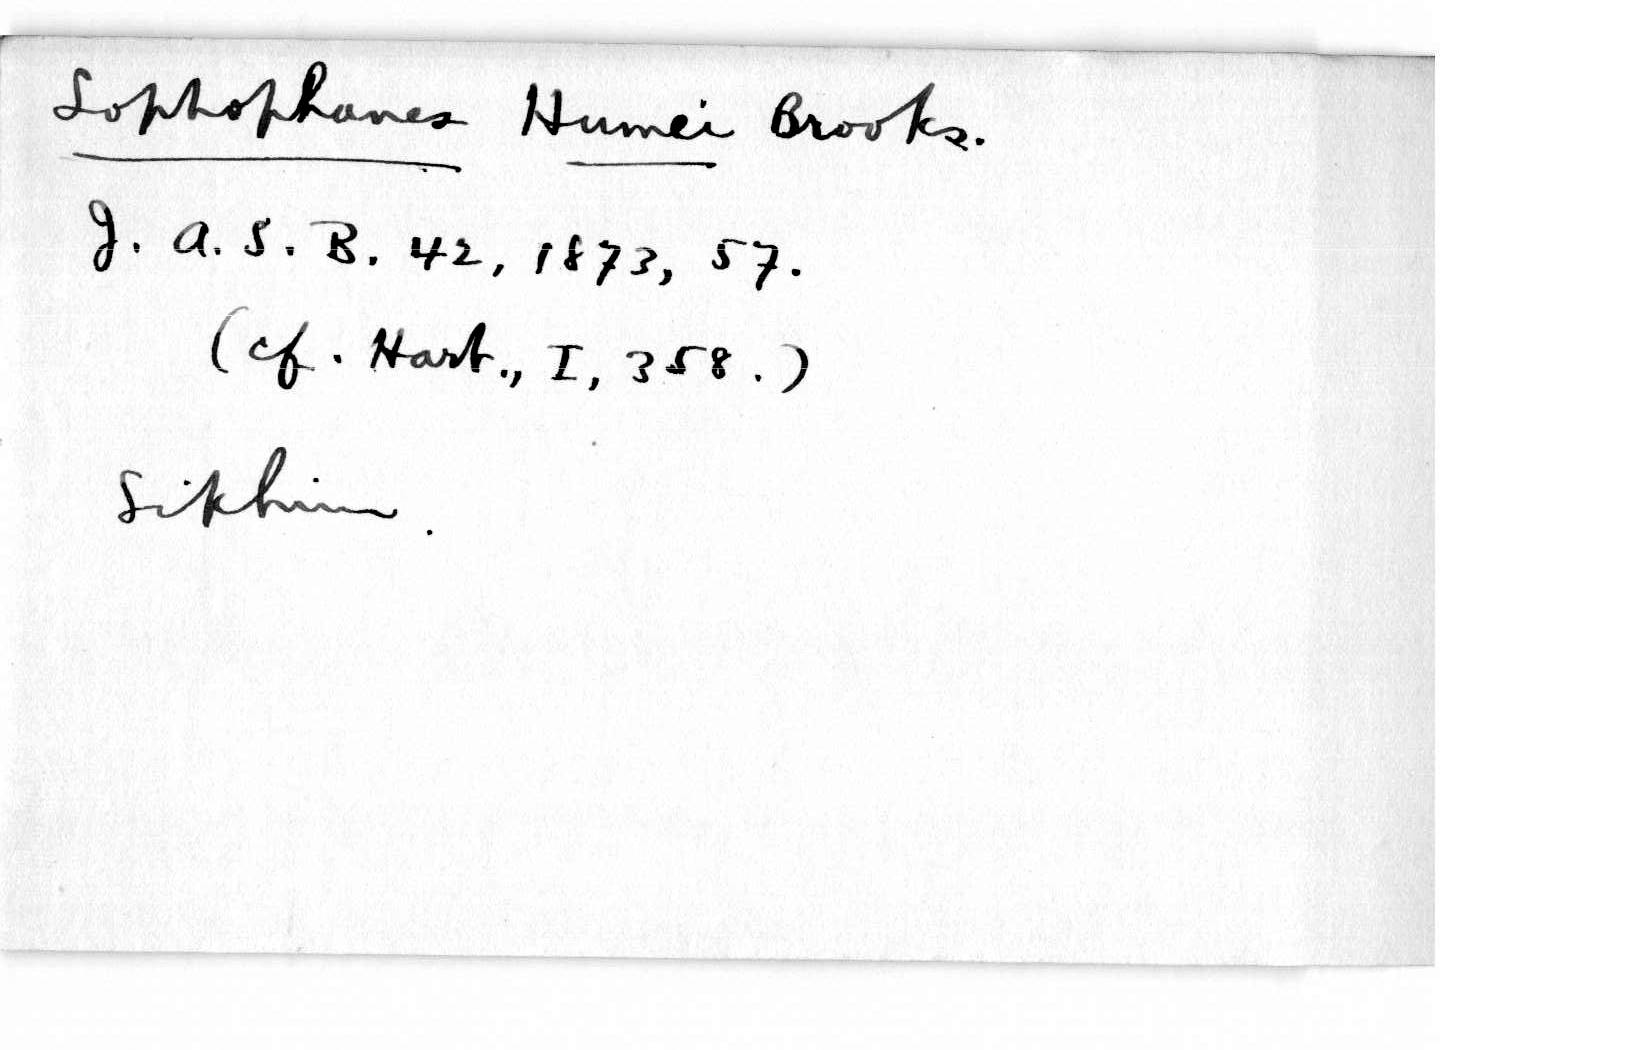 Lophophanes Humei Brooks.
J. A. S. B. 42, 1873, 57.
(cf. Hart., I, 358.)
Sikhim.